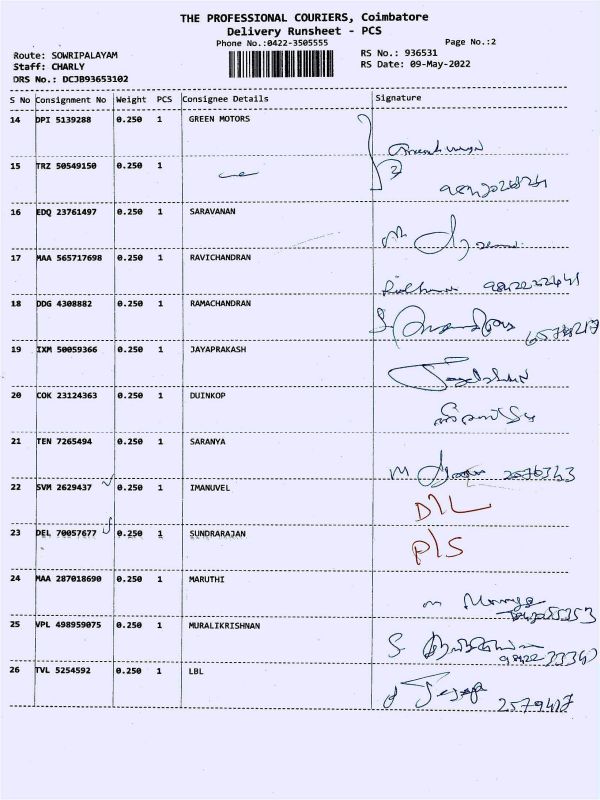 THE PROFESSIONAL COURIERS, Coimbatore
Delivery Runsheet - PCS
Phone No.:0422-3505555
Page No.:2
Route: SOWRIPALAYAM
RS No.: 936531
Staff: CHARLY
RS Date: 09-May-2022
DRS No.: DCJB93653102
S No Consignment No Weight PCS Consignee Details Signature
14 DPI 5139288 0.250 1 GREEN MOTORS
15 TRZ 50549150 0.250 1
16 EDQ 23761497 0.250 1 SARAVANAN
17 MAA 565717698 0.250 1 RAVICHANDRAN
18 DDG 4308882 0.250 1 RAMACHANDRAN
19 IXM 50059366 0.250 1 JAYAPRAKASH
20 COK 23124363 0.250 1 DUINKOP
21 TEN 7265494 0.250 1 SARANYA
M 2576343
22 SVM 2629437 0.250 1 IMANUVEL
D/L
23 DEL 70057677 0.250 1 SUNDRARAJAN
P/S
24 MAA 287018690 0.250 1 MARUTHI
25 VPL 498959075 0.250 1 MURALIKRISHNAN
S
26 TVL 5254592 0.250 1 LBL
2579417